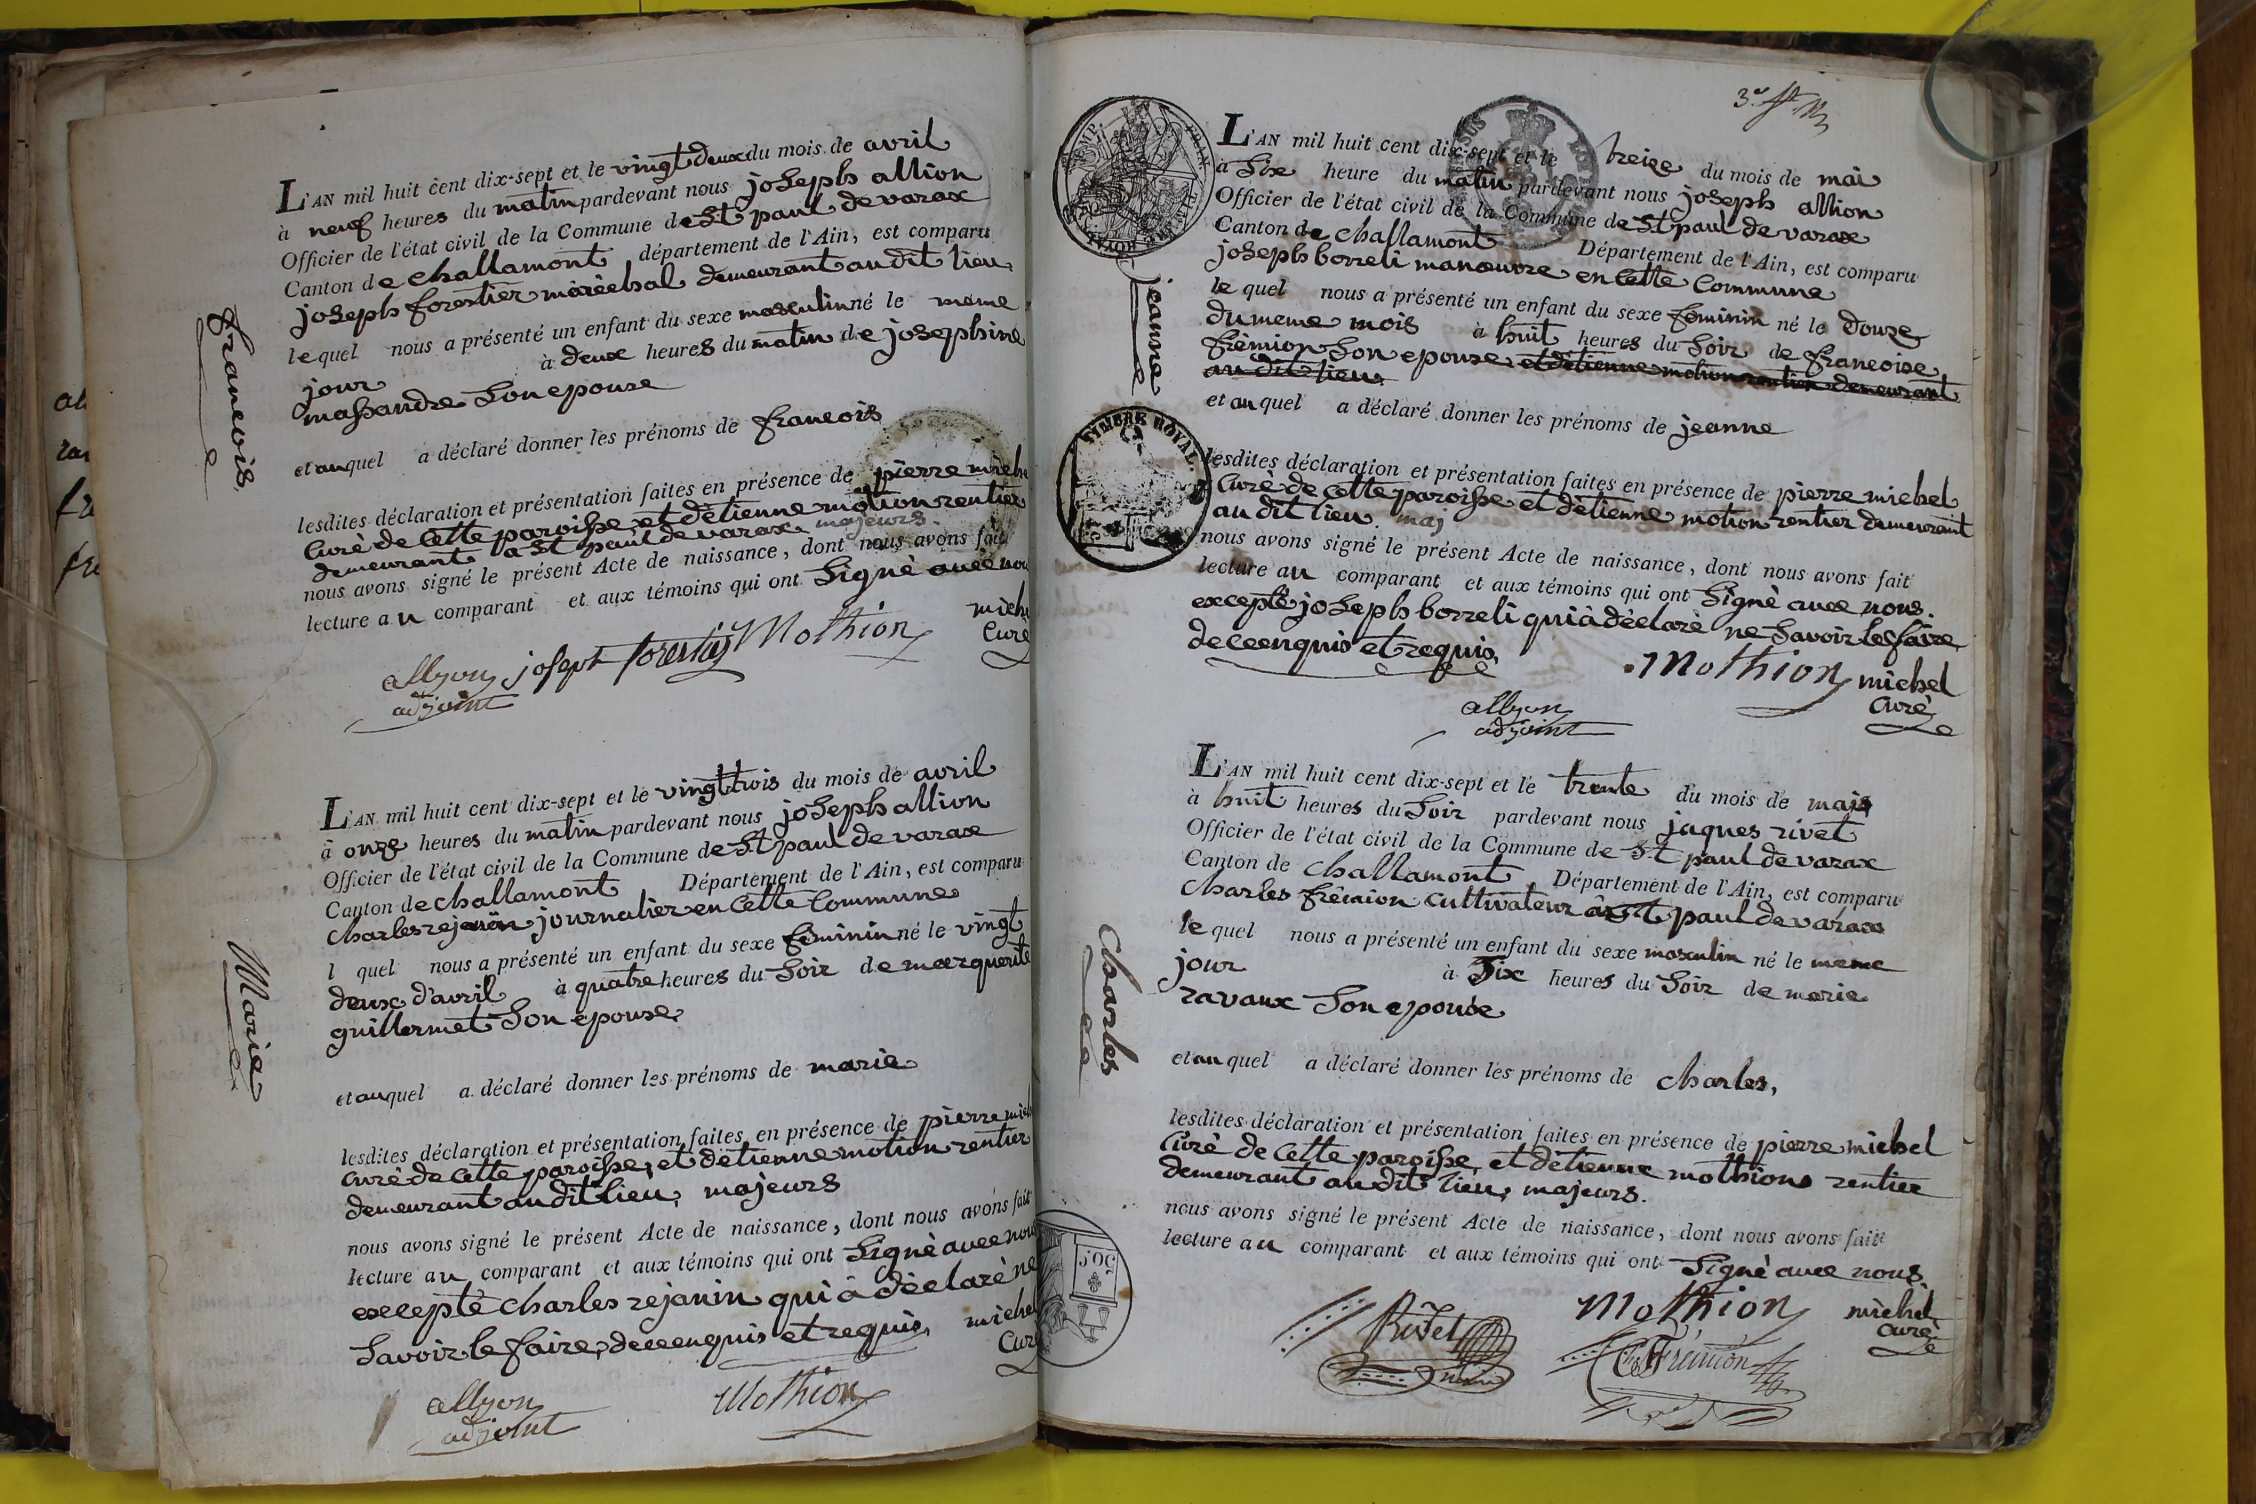 L'AN mil huit cent dix-sept et le vingt deux du mois de avril
à neuf heures du matin pardevant nous joseph allion
Officier de l'état civil de la Commune de St paul de varax
Canton de challamont département de l'Ain, est comparu
joseph forestier maréchal demeurant au dit lieu,
lequel nous a présenté un enfant du sexe masculin né le meme
jour à deux heures du matin de josephine
massandre son epouse
et auquel a déclaré donner les prénoms de francois
lesdites déclaration et présentation faites en présence de pierre miche
curé de cette paroisse, et d'etienne motion rentier
demeurant a St paul de varax majeurs.
nous avons signé le présent Acte de naissance, dont nous avons fait
lecture au comparant et aux témoins qui ont signé avec nou
francois,
allyon
adjoint
joseph forestier
Mothion
miche
curé
L'AN mil huit cent dix-sept et le vingt trois du mois de avril
à onze heures du matin pardevant nous joseph allion
Officier de l'état civil de la Commune de St paul de varax
Canton de challamont Département de l'Ain, est comparu
charles rejanin journalier en cette commune
l quel nous a présenté un enfant du sexe feminin né le vingt
deux d'avril à quatre heures du soir de marguerite
guillermet son epouse,
et auquel a déclaré donner les prénoms de marie
lesdites déclaration et présentation faites en présence de pierre mich
curé de cette paroisse, et d'etienne motion rentier
demeurant au dit lieu, majeurs
nous avons signé le présent Acte de naissance, dont nous avons fait
lecture au comparant et aux témoins qui ont signé avec nou
excepté charles rejanin qui à déclaré ne
savoir le faire, de ce enquis et requis,
Marie
michel
curé
allyon
adjoint
Mothion
3e
TIMBRE ROYAL.
L'AN mil huit cent dix-sept et le treize du mois de mai
à six heure du matin pardevant nous joseph allion
Officier de l'état civil de la Commune de St paul de varax
Canton de challamont Département de l'Ain, est comparu
joseph borreli manœuvre en cette commune
le quel nous a présenté un enfant du sexe feminin né le douze
du meme mois à huit heures du soir de francoise
frémion son epouse et d'etienne motion rentier demeurant
au dit lieu.
et auquel a déclaré donner les prénoms de jeanne
lesdites déclaration et présentation faites en présence de pierre michel
curé de cette paroisse et d'etienne motion rentier demeurant
au dit lieu. maj
nous avons signé le présent Acte de naissance, dont nous avons fait
lecture au comparant et aux témoins qui ont signé avec nous.
excepté joseph borreli qui à déclaré ne savoir le faire
de ce enquis et requis,
jeanne
Mothion
michel
curé
allyon
adjoint
L'AN mil huit cent dix-sept et le trente du mois de mai
à huit heures du soir pardevant nous jaques rivet
Officier de l'état civil de la Commune de St paul de varax
Canton de challamont Département de l'Ain, est comparu
charles frémion cultivateur à St paul de varax
le quel nous a présenté un enfant du sexe masculin né le même
jour à six heures du soir de marie
ravaux son epouse
et auquel a déclaré donner les prénoms de charles,
lesdites déclaration et présentation faites en présence de pierre michel
curé de cette paroisse, et d'etienne mothion rentier
demeurant au dit lieu, majeurs.
nous avons signé le présent Acte de naissance, dont nous avons fait
lecture au comparant et aux témoins qui ont signé avec nous,
Charles
Rivet
Mothion
michel
curé
Frémion
50 c